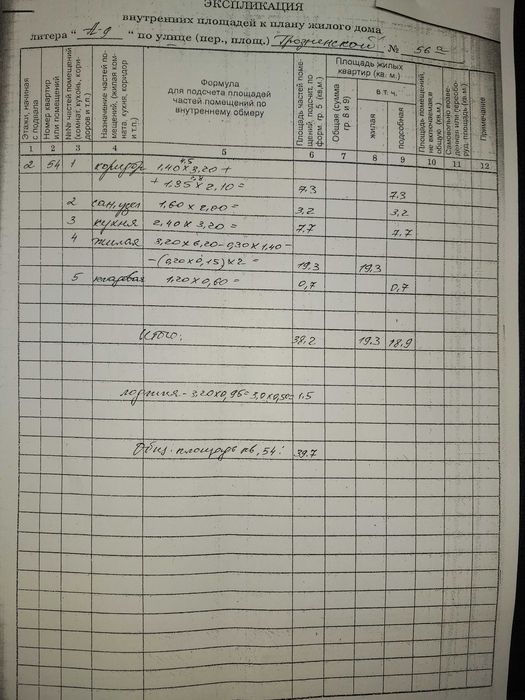 ЭКСПЛИКАЦИЯ
внутренних площадей к плану жилого дома
литера " А-9 " по улице (пер., площ.) Грозненской № 56а
Этажи, начиная с подвала
Номер квартир или помещений
№№ частей помещений (комнат, кухонь, коридоров и т.п.)
Назначение частей помещений, (жилая комната, кухня, коридор и т.п.)
Формула для подсчета площадей частей помещений по внутреннему обмеру
Площадь частей помещений, подсчит. по форм. гр. 5 (кв.м.)
Общая (сумма гр. 8 и 9)
Площадь жилых квартир (кв. м.)
в т. ч.
жилая
подсобная
Площадь помещений, не включаемая в общую (кв.м.)
Самовольно возведенная или переоборуд. площадь (кв.м.)
Примечание
1 2 3 4 5 6 7 8 9 10 11 12
2 54 1 коридор 1,40 × 3,20 +
+ 1,35 × 2,10 = 7.3 7.3
2 сан,узел 1,60 × 2,00 = 3,2 3,2
3 кухня 2,40 × 3,20 = 7.7 7.7
4 жилая 3,20 × 6,20 - 0,30 × 1,40 -
- (0,20 × 0,15) × 2 = 19.3 19.3
5 кладовая 1,20 × 0,60 = 0,7 0,7
Итого: 38.2 19.3 18.9
лоджия - 3,20 × 0,95 = 3,0 × 0,50 = 1.5
Общ. площадь кв, 54: 39.7